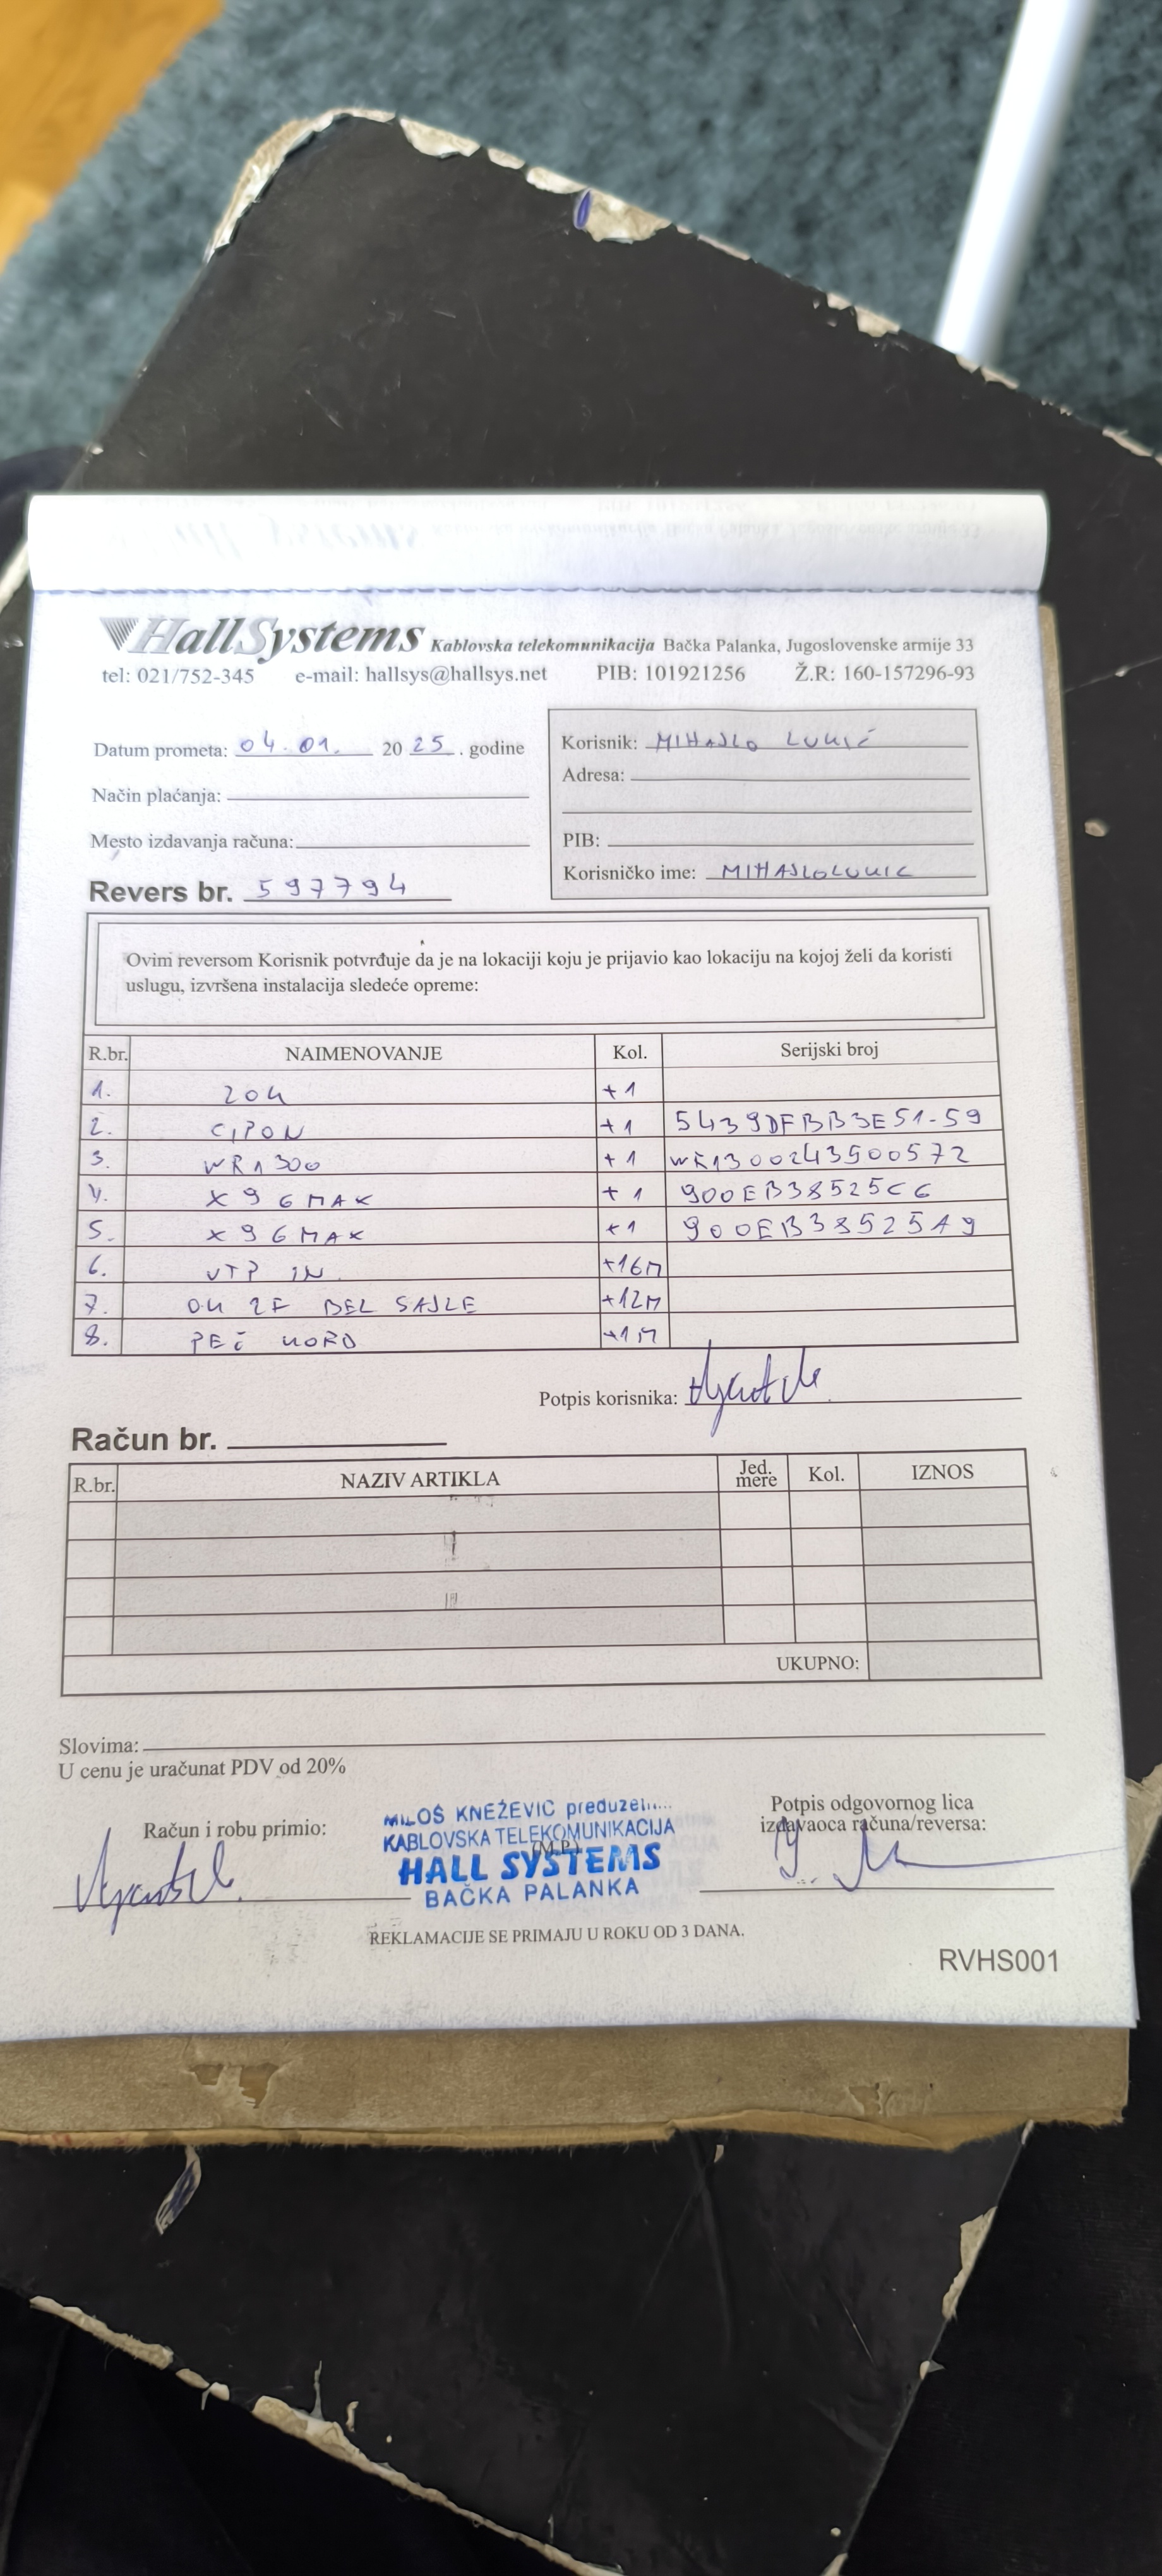 HallSystems Kablovska telekomunikacija Bačka Palanka, Jugoslovenske armije 33
tel: 021/752-345 e-mail: hallsys@hallsys.net PIB: 101921256 Ž.R: 160-157296-93
Datum prometa: 04.01. 2025. godine
Način plaćanja:
Mesto izdavanja računa:
Revers br. 597794
Korisnik: MIHAJLO LUKIĆ
Adresa:
PIB:
Korisničko ime: MIHAJLOLUKIC
Ovim reversom Korisnik potvrđuje da je na lokaciji koju je prijavio kao lokaciju na kojoj želi da koristi
uslugu, izvršena instalacija sledeće opreme:
R.br. NAIMENOVANJE Kol. Serijski broj
1. ZOK +1
2. GPON +1 5439DFBB3E51-59
3. WR1300 +1 WR1300243500572
4. X96MAX +1 900EB38525C6
5. X96MAX +1 900EB38525A9
6. UTP IN +16M
7. OK 2F BEL SAJLE +12M
8. PEČ KORD +1M
Potpis korisnika:
Račun br.
R.br. NAZIV ARTIKLA Jed. mere Kol. IZNOS
UKUPNO:
Slovima:
U cenu je uračunat PDV od 20%
Račun i robu primio:
MILOŠ KNEŽEVIĆ
KABLOVSKA TELEKOMUNIKACIJA
(M.P.)
HALL SYSTEMS
BAČKA PALANKA
Potpis odgovornog lica
izdavaoca računa/reversa:
REKLAMACIJE SE PRIMAJU U ROKU OD 3 DANA.
RVHS001